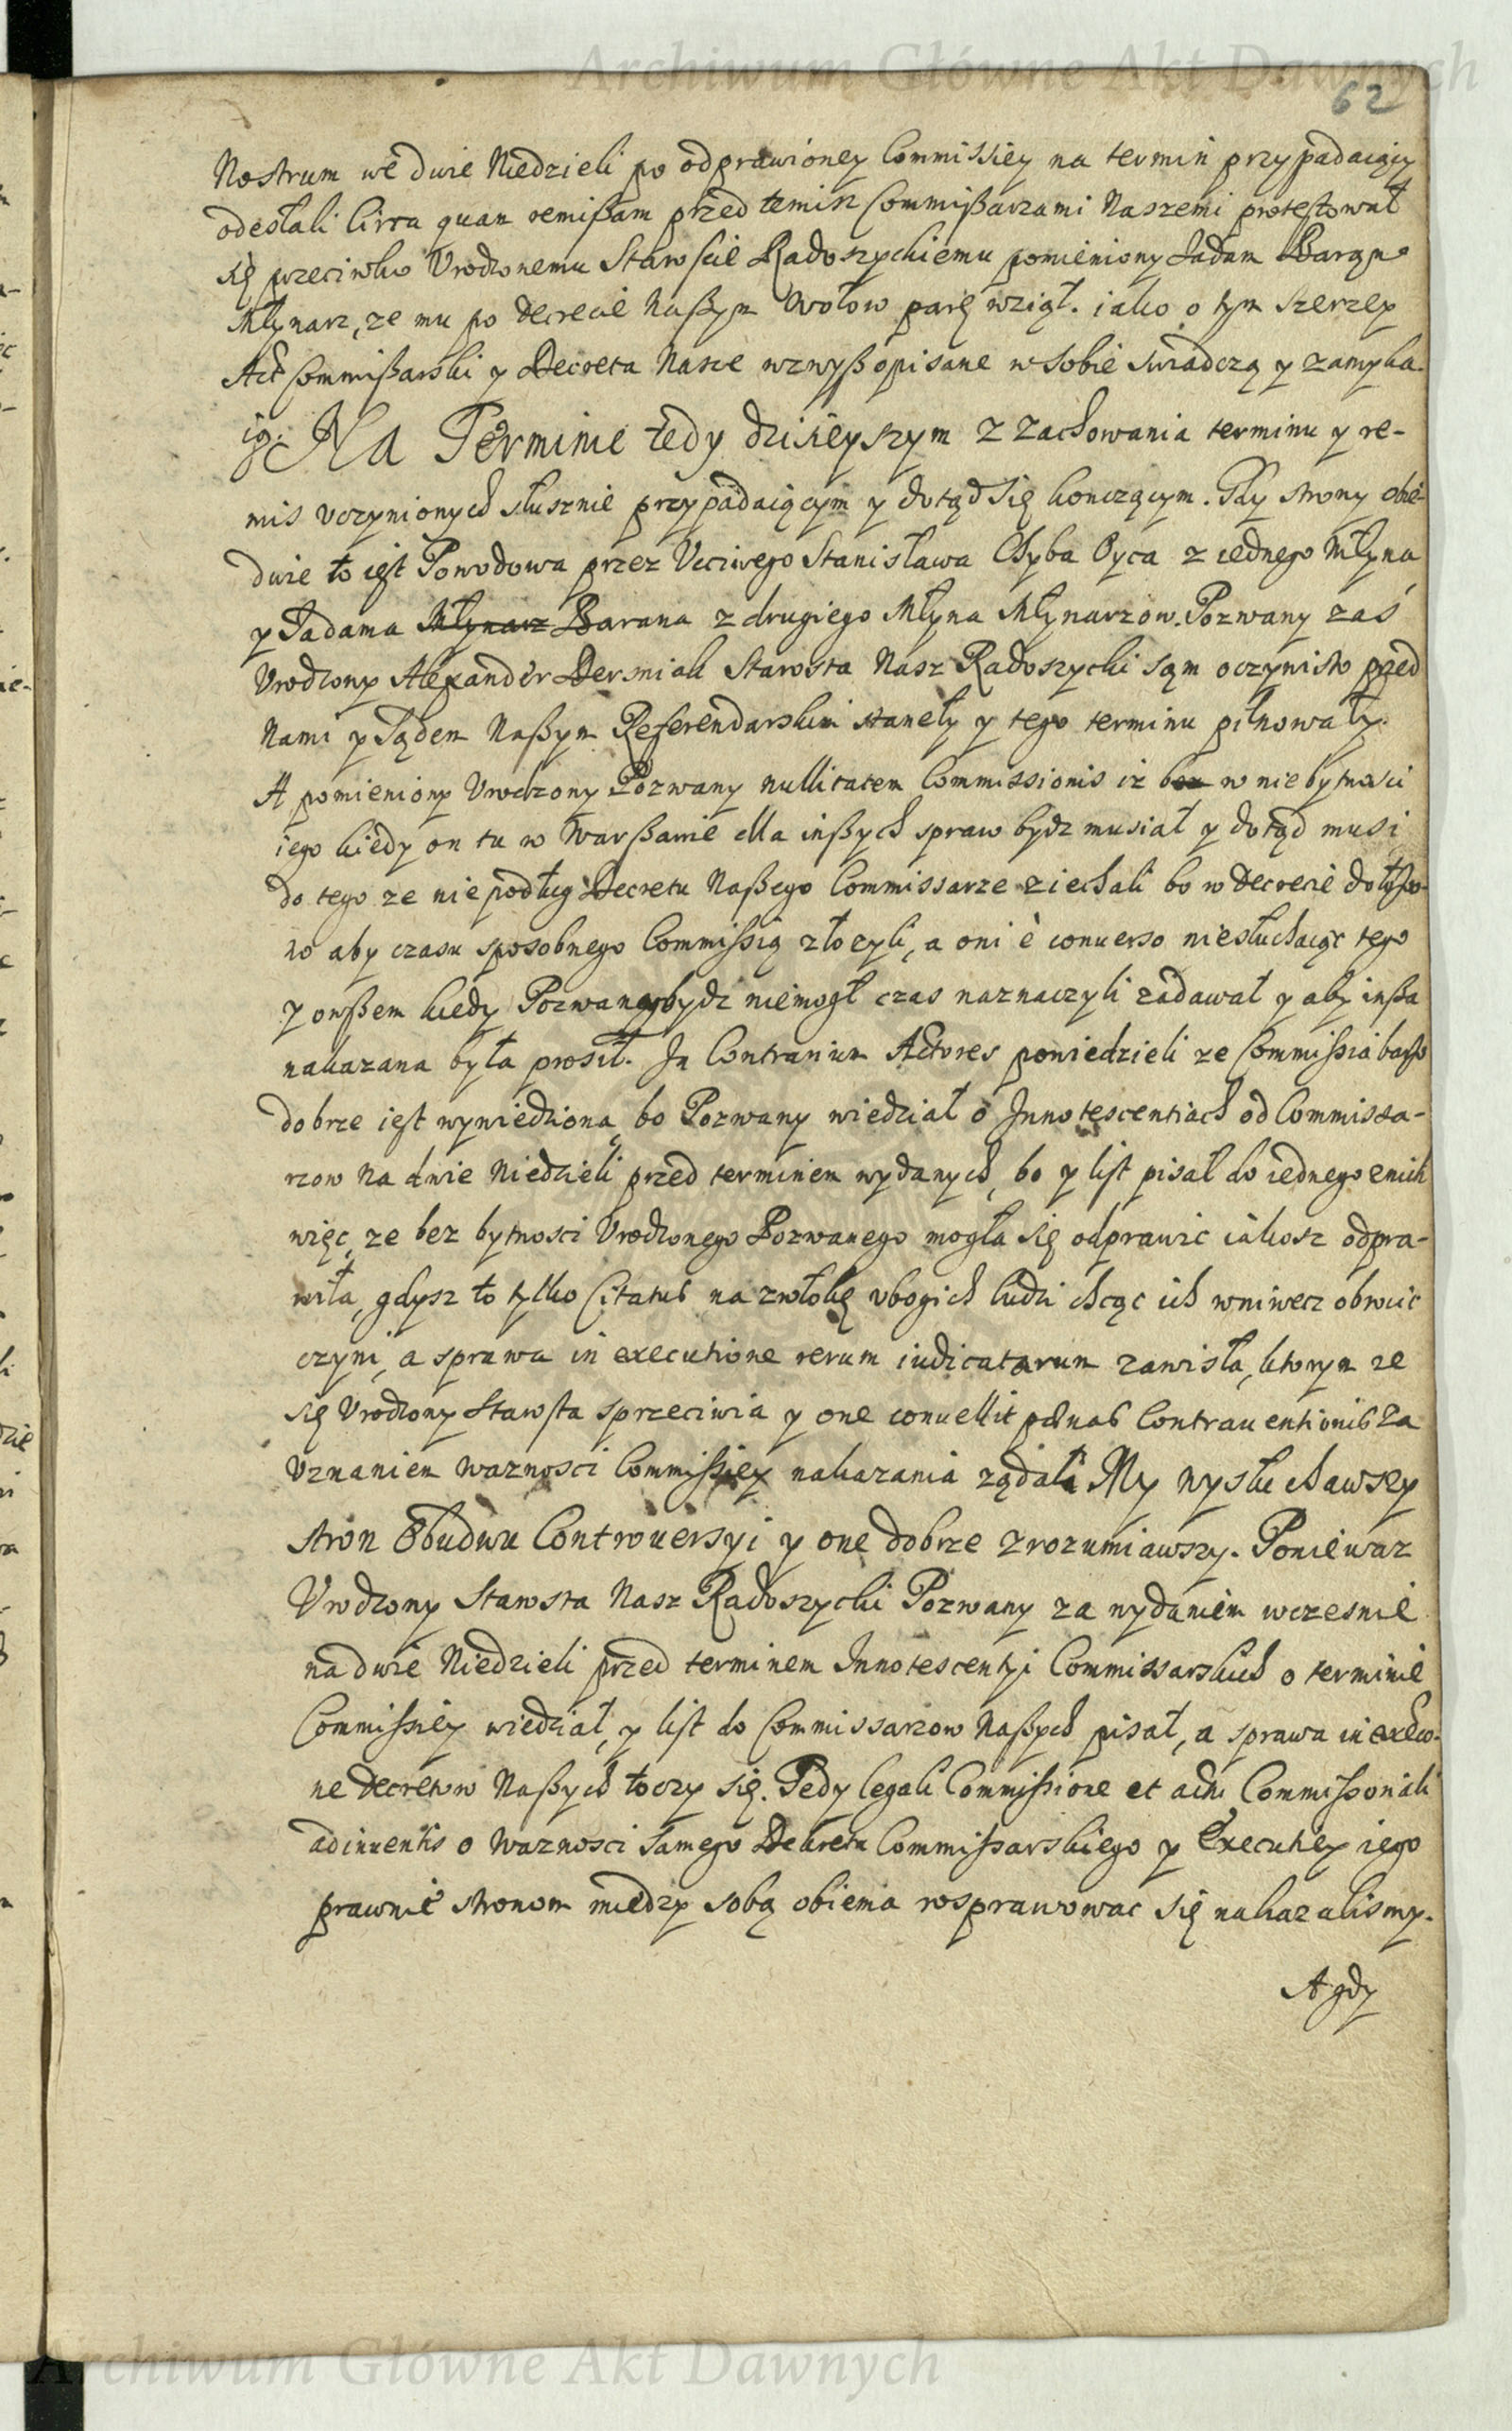 Archiwum Główne Akt Dawnych
62
Nostrum we dwie Niedzieli po odprawioney Commissiey na termin przypadaiący
odesłali Circa quam remißam przed temisz Commißarzami Naszemi protestował
się przeciwko Vrodzonemu Staroscie Radoszyckiemu pomieniony Jadam Baran
Młynarz, ze mu po decrecie Naßym Wołow parę wziął. iako o tym szerzey
Act Commißarski y Decreta Nasze wzwyß opisane w sobie swiadczą y zamyka-
ią. Na Terminie tedy dzisieyszym z zachowania terminu y re-
mis vczynionych słusznie przypadaiącym y dotąd się konczącym. Gdy strony obie-
dwie to iest Powodowa przez Vcciwego Stanisława Chyba Oyca z iednego Młyna
y Jadama Młynarz Barana z drugiego Młyna Młynarzow. Pozwany zaś
Vrodzony Alexander Dersniak Starosta Nasz Radoszycki sąm oczywisto przed
Nami y Sądem Naßym Referendarskim staneły y tego terminu pilnowały.
A pomieniony Vrodzony Pozwany nullitatem Commissionis iz w niebytnosci
iego kiedy on tu w Warßawie dla inßych spraw bydz musiał y dotąd musi
do tego ze nie podług Decretu Naßego Commissarze ziechali bo w decrecie dołożo-
no aby czasu sposobnego Commißią złozyli, a oni è conuerso niesłuchaiąc tego
y owßem kiedy Pozwany bydz niemogł czas naznaczyli zadawał y aby inßa
nakazana była prosił. In Contrarium Actores powiedzieli ze Commißia barzo
dobrze iest wywiedziona, bo Pozwany wiedział o Innotescentiach od Commissa-
rzow na dwie Niedzieli przed terminem wydanych, bo y list pisał do iednego znich
więc, ze bez bytnosci Vrodzonego Pozwanego mogła się odprawic iakosz odpra-
wiła, gdysz to tylko Citatus na zwłokę vbogich ludzi chcąc ich wniwecz obrocic
czyni, a sprawa in executione rerum iudicatarum zawisła, ktorym ze
się Vrodzony Starosta sprzeciwia y one conuellit pænas Contrauentionis za
Vznaniem waznosci Commißiey nakazania ządali My wysłuchawszy
stron Obudwu Controuersyi y one dobrze zrozumiawszy. Poniewaz
Vrodzony Starosta Nasz Radoszycki Pozwany za wydaniem wczesnie
na dwie Niedzieli przed terminem Innotescentyi Commissarskich o terminie
Commißiey wiedział, y list do Commissarzow Naßych pisał, a sprawa in exēco-
ne decretow Naßych toczy się. Tedy legali Commißione et actu Commißionali
adinuentis o waznosci samego Dekretu Commißarskiego y Executiey iego
prawnie stronom miedzy sobą obiema rosprawowac się nakazalismy.
A gdy
Archiwum Główne Akt Dawnych